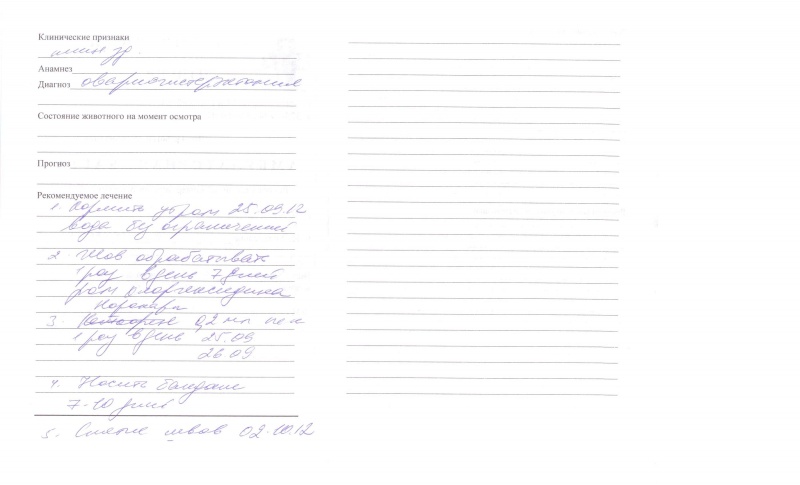 Клинические признаки
клин зд.
Анамнез
Диагноз овариогистерэктомия
Состояние животного на момент осмотра
Прогноз
Рекомендуемое лечение
1. Кормить утром 25.09.12
вода без ограничений
2. Шов обрабатывать
1 раз в день 7 дней
р-ом хлоргексидина
3. 0,2 мл п/к
1 раз в день 25.09
26.09
4. Носить бандаж
7-10 дней
5. Снятие швов 02.10.12